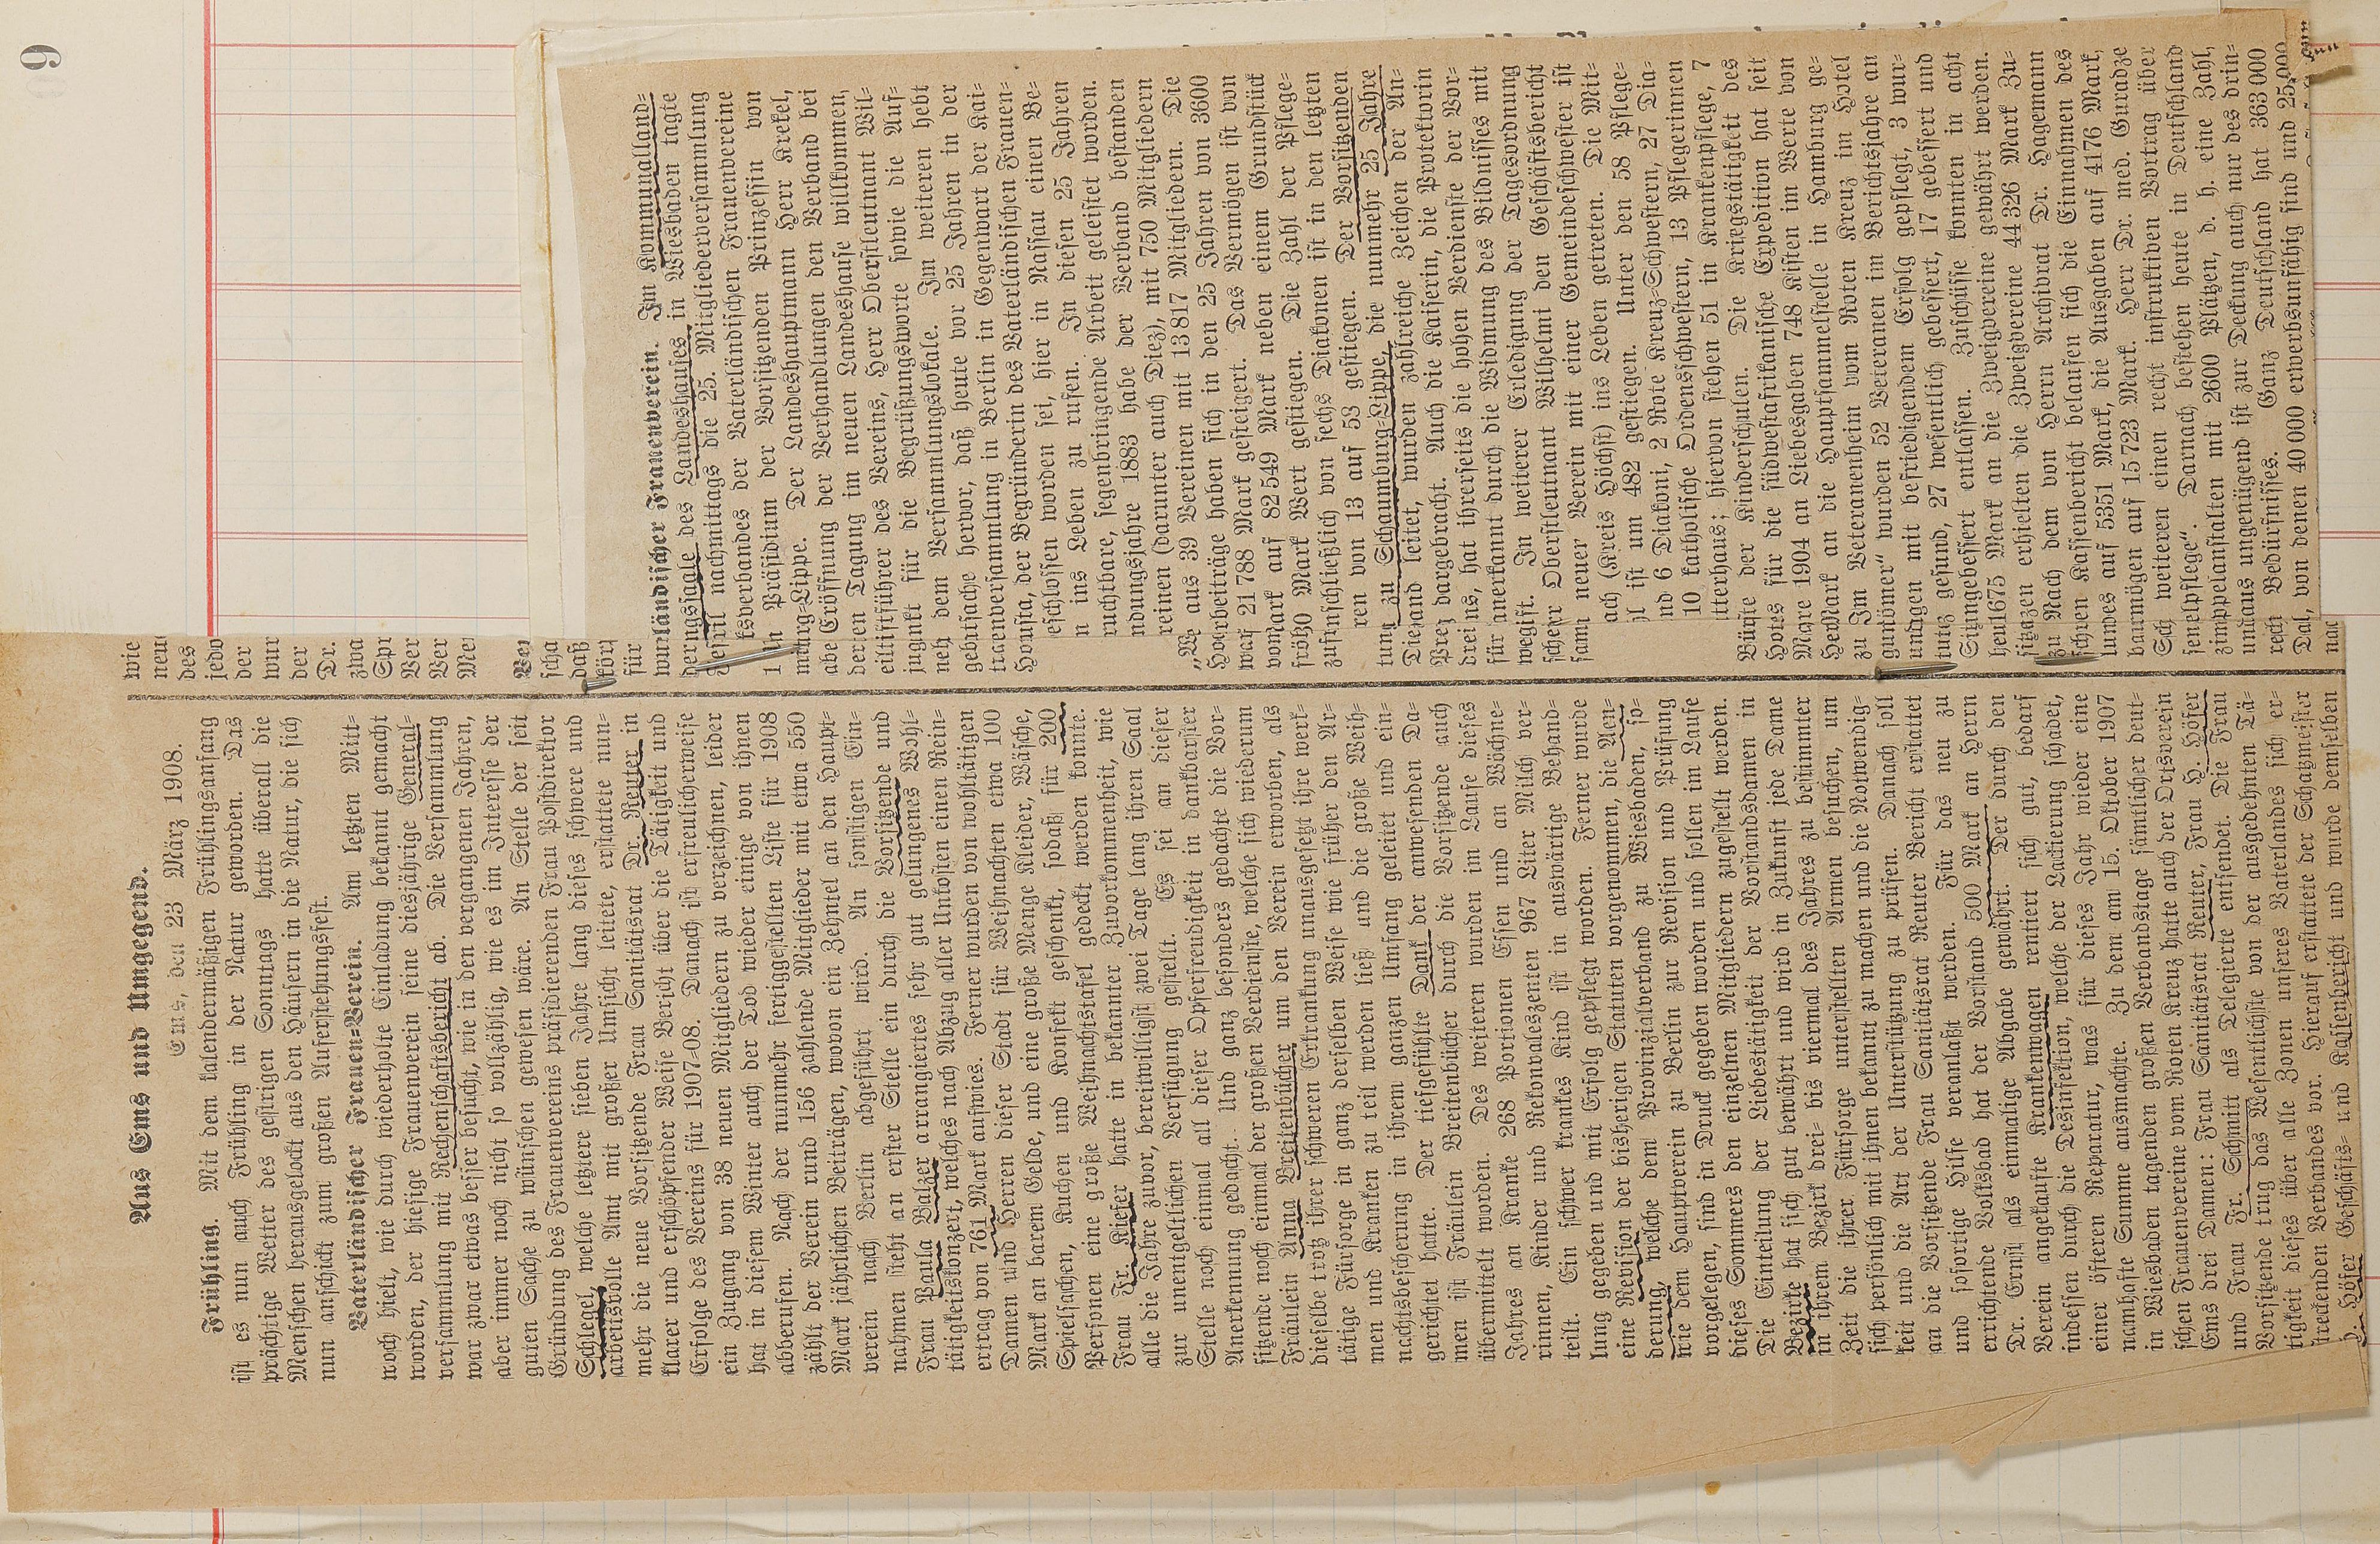 9
Aus Ems und Umgegend.
Ems, den 23 März 1908.
Frühling. Mit dem kalendermäßigen Frühlingsanfang
ist es nun auch Frühling in der Natur geworden. Das
prächtige Wetter des gestrigen Sonntags hatte überall die
Menschen herausgelockt aus den Häusern in die Natur, die sich
nun anschickt zum großen Auferstehungsfest.
Vaterländischer Frauen=Verein. Am letzten Mitt=
woch hielt, wie durch wiederholte Einladung bekannt gemacht
worden, der hiesige Frauenverein seine diesjährige General=
versammlung mit Rechenschaftsbericht ab. Die Versammlung
war zwar etwas besser besucht, wie in den vergangenen Jahren,
aber immer noch nicht so vollzählig, wie es im Interesse der
guten Sache zu wünschen gewesen wäre. An Stelle der seit
Gründung des Frauenvereins präsidierenden Frau Postdirektor
Schlegel, welche letztere sieben Jahre lang dieses schwere und
arbeitsvolle Amt mit großer Umsicht leitete, erstattete nun=
mehr die neue Vorsitzende Frau Sanitätsrat Dr. Reuter in
klarer und erschöpfender Weise Bericht über die Tätigkeit und
Erfolge des Vereins für 1907=08. Danach ist erfreulicherweise
ein Zugang von 38 neuen Mitgliedern zu verzeichnen, leider
hat in diesem Winter auch der Tod wieder einige von ihnen
abberufen. Nach der nunmehr fertiggestellten Liste für 1908
zählt der Verein rund 156 zahlende Mitglieder mit etwa 550
Mark jährlichen Beiträgen, wovon ein Zehntel an den Haupt=
verein nach Berlin abgeführt wird. An sonstigen Ein=
nahmen steht an erster Stelle ein durch die Vorsitzende und
Frau Paula Balzer arrangiertes sehr gut gelungenes Wohl=
tätigkeitskonzert, welches nach Abzug aller Unkosten einen Rein=
ertrag von 761 Mark aufwies. Ferner wurden von wohltätigen
Damen und Herren dieser Stadt für Weihnachten etwa 100
Mark an barem Gelde, und eine große Menge Kleider, Wäsche,
Spielsachen, Kuchen und Konfekt geschenkt, sodaß für 200
Personen eine große Weihnachtstafel gedeckt werden konnte.
Frau Fr. Kiefer hatte in bekannter Zuvorkommenheit, wie
alle die Jahre zuvor, bereitwilligst zwei Tage lang ihren Saal
zur unentgeltlichen Verfügung gestellt. Es sei an dieser
Stelle noch einmal all dieser Opferfreudigkeit in dankbarster
Anerkennung gedacht. Und ganz besonders gedachte die Vor=
sitzende noch einmal der großen Verdienste, welche sich wiederum
Fräulein Anna Breitenbücher um den Verein erworben, als
dieselbe trotz ihrer schweren Erkrankung unausgesetzt ihre werk=
tätige Fürsorge in ganz derselben Weise wie früher den Ar=
men und Kranken zu teil werden ließ und die große Weih=
nachtsbescherung in ihrem ganzen Umfang geleitet und ein=
gerichtet hatte. Der tiefgefühlte Dank der anwesenden Da=
men ist Fräulein Breitenbücher durch die Vorsitzende auch
übermittelt worden. Des weiteren wurden im Laufe dieses
Jahres an Kranke 268 Portionen Essen und an Wöchne=
rinnen, Kinder und Rekonvaleszenten 967 Liter Milch ver=
teilt. Ein schwer krankes Kind ist in auswärtige Behand=
lung gegeben und mit Erfolg gepflegt worden. Ferner wurde
eine Revision der bisherigen Statuten vorgenommen, die Aen=
derung, welche dem Provinzialverband zu Wiesbaden, so=
wie dem Hauptverein zu Berlin zur Revision und Prüfung
vorgelegen, sind in Druck gegeben worden und sollen im Laufe
dieses Sommers den einzelnen Mitgliedern zugestellt werden.
Die Einteilung der Liebestätigkeit der Vorstandsdamen in
Bezirke hat sich gut bewährt und wird in Zukunft jede Dame
in ihrem Bezirk drei= bis viermal des Jahres zu bestimmter
Zeit die ihrer Fürsorge unterstellten Armen besuchen, um
sich persönlich mit ihnen bekannt zu machen und die Notwendig=
keit und die Art der Unterstützung zu prüfen. Danach soll
an die Vorsitzende Frau Sanitätsrat Reuter Bericht erstattet
und sofortige Hilfe veranlaßt werden. Für das neu zu
errichtende Volksbad hat der Vorstand 500 Mark an Herrn
Dr. Ernst als einmalige Abgabe gewährt. Der durch den
Verein angekaufte Krankenwagen rentiert sich gut, bedarf
indessen durch die Desinfektion, welche der Lackierung schadet,
einer öfteren Reparatur, was für dieses Jahr wieder eine
namhafte Summe ausmachte. Zu dem am 15. Oktober 1907
in Wiesbaden tagenden großen Verbandstage sämtlicher deut=
schen Frauenvereine vom Roten Kreuz hatte auch der Ortsverein
Ems drei Damen: Frau Sanitätsrat Reuter, Frau H. Höfer
und Frau Fr. Schmitt als Delegierte entsendet. Die Frau
Vorsitzende trug das Wesentlichste von der ausgedehnten Tä=
tigkeit dieses über alle Zonen unseres Vaterlandes sich er=
streckenden Verbandes vor. Hierauf erstattete der Schatzmeister
H. Höfer Geschäfts= und Kassenbericht und wurde demselben
wie
neu
des
jedo
der
wur
der
Dr.
zwa
Spr
Ver
Ver
Mei
scha
daß
für
ländischer Frauenverein. Im Kommunalland=
ngssaale des Landeshauses in Wiesbaden tagte
pril nachmittags die 25. Mitgliederversammlung
ksverbandes der Vaterländischen Frauenvereine
Präsidium der Vorsitzenden Prinzessin von
urg=Lippe. Der Landeshauptmann Herr Krekel,
e Eröffnung der Verhandlungen den Verband bei
en Tagung im neuen Landeshause willkommen,
tführer des Vereins, Herr Oberstleutnant Wil=
nkt für die Begrüßungsworte sowie die Auf=
dem Versammlungslokale. Im weiteren hebt
tsache hervor, daß heute vor 25 Jahren in der
enversammlung in Berlin in Gegenwart der Kai=
sta, der Begründerin des Vaterländischen Frauen=
eschlossen worden sei, hier in Nassau einen Be=
n ins Leben zu rufen. In diesen 25 Jahren
ruchtbare, segenbringende Arbeit geleistet worden.
ndungsjahre 1883 habe der Verband bestanden
reinen (darunter auch Diez), mit 750 Mitgliedern
aus 39 Vereinen mit 13 817 Mitgliedern. Die
beiträge haben sich in den 25 Jahren von 3600
f 21 788 Mark gesteigert. Das Vermögen ist von
ark auf 82 549 Mark neben einem Grundstück
0 Mark Wert gestiegen. Die Zahl der Pflege=
inschließlich von sechs Diakonen ist in den letzten
ren von 13 auf 58 gestiegen. Der Vorsitzenden
zu Schaumburg=Lippe, die nunmehr 25 Jahre
and leitet, wurden zahlreiche Zeichen der An=
dargebracht. Auch die Kaiserin, die Protektorin
ns, hat ihrerseits die hohen Verdienste der Vor=
anerkannt durch die Widmung des Bildnisses mit
ift. In weiterer Erledigung der Tagesordnung
r Oberstleutnant Wilhelmi den Geschäftsbericht
neuer Verein mit einer Gemeindeschwester ist
ach (Kreis Höchst) ins Leben getreten. Die Mit=
l ist um 482 gestiegen. Unter den 58 Pflege=
nd 6 Diakoni, 2 Rote Kreuz=Schwestern, 27 Dia=
10 katholische Ordensschwestern, 13 Pflegerinnen
tterhaus; hiervon stehen 51 in Krankenpflege, 7
ste der Kinderschulen. Die Kriegstätigkeit des
s für die südwestafrikanische Expedition hat seit
re 1904 an Liebesgaben 748 Kisten im Werte von
Mark an die Hauptsammelstelle in Hamburg ge=
Im Veteranenheim vom Roten Kreuz im Hotel
ömer“ wurden 52 Veteranen im Berichtsjahre an
agen mit befriedigendem Erfolg gepflegt, 3 wur=
gesund, 27 wesentlich gebessert, 17 gebessert und
ngebessert entlassen. Zuschüsse konnten in acht
1675 Mark an die Zweigvereine gewährt werden.
en erhielten die Zweigvereine 44 326 Mark Zu=
Nach dem von Herrn Archivrat Dr. Hagemann
en Kassenbericht belaufen sich die Einnahmen des
es auf 5351 Mark, die Ausgaben auf 4176 Mark,
rmögen auf 15 723 Mark. Herr Dr. med. Guradze
weiteren einen recht instruktiven Vortrag über
elpflege“. Darnach bestehen heute in Deutschland
ppelanstalten mit 2600 Plätzen, d. h. eine Zahl,
aus ungenügend ist zur Deckung auch nur des drin=
Bedürfnisses. Ganz Deutschland hat 363 000
, von denen 40 000 erwerbsunfähig sind und 25,000